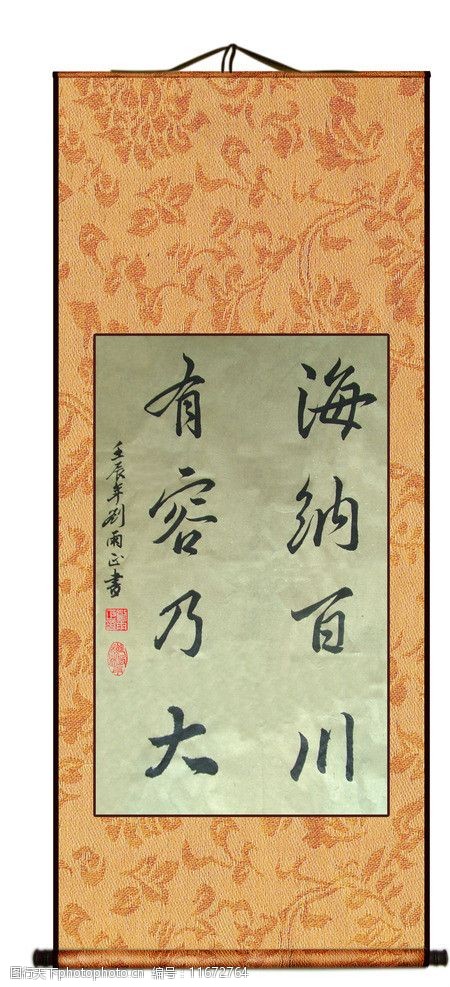 海纳百川
有容乃大
壬辰年刘雨正書
图行天下photophoto.cn 编号：11672764